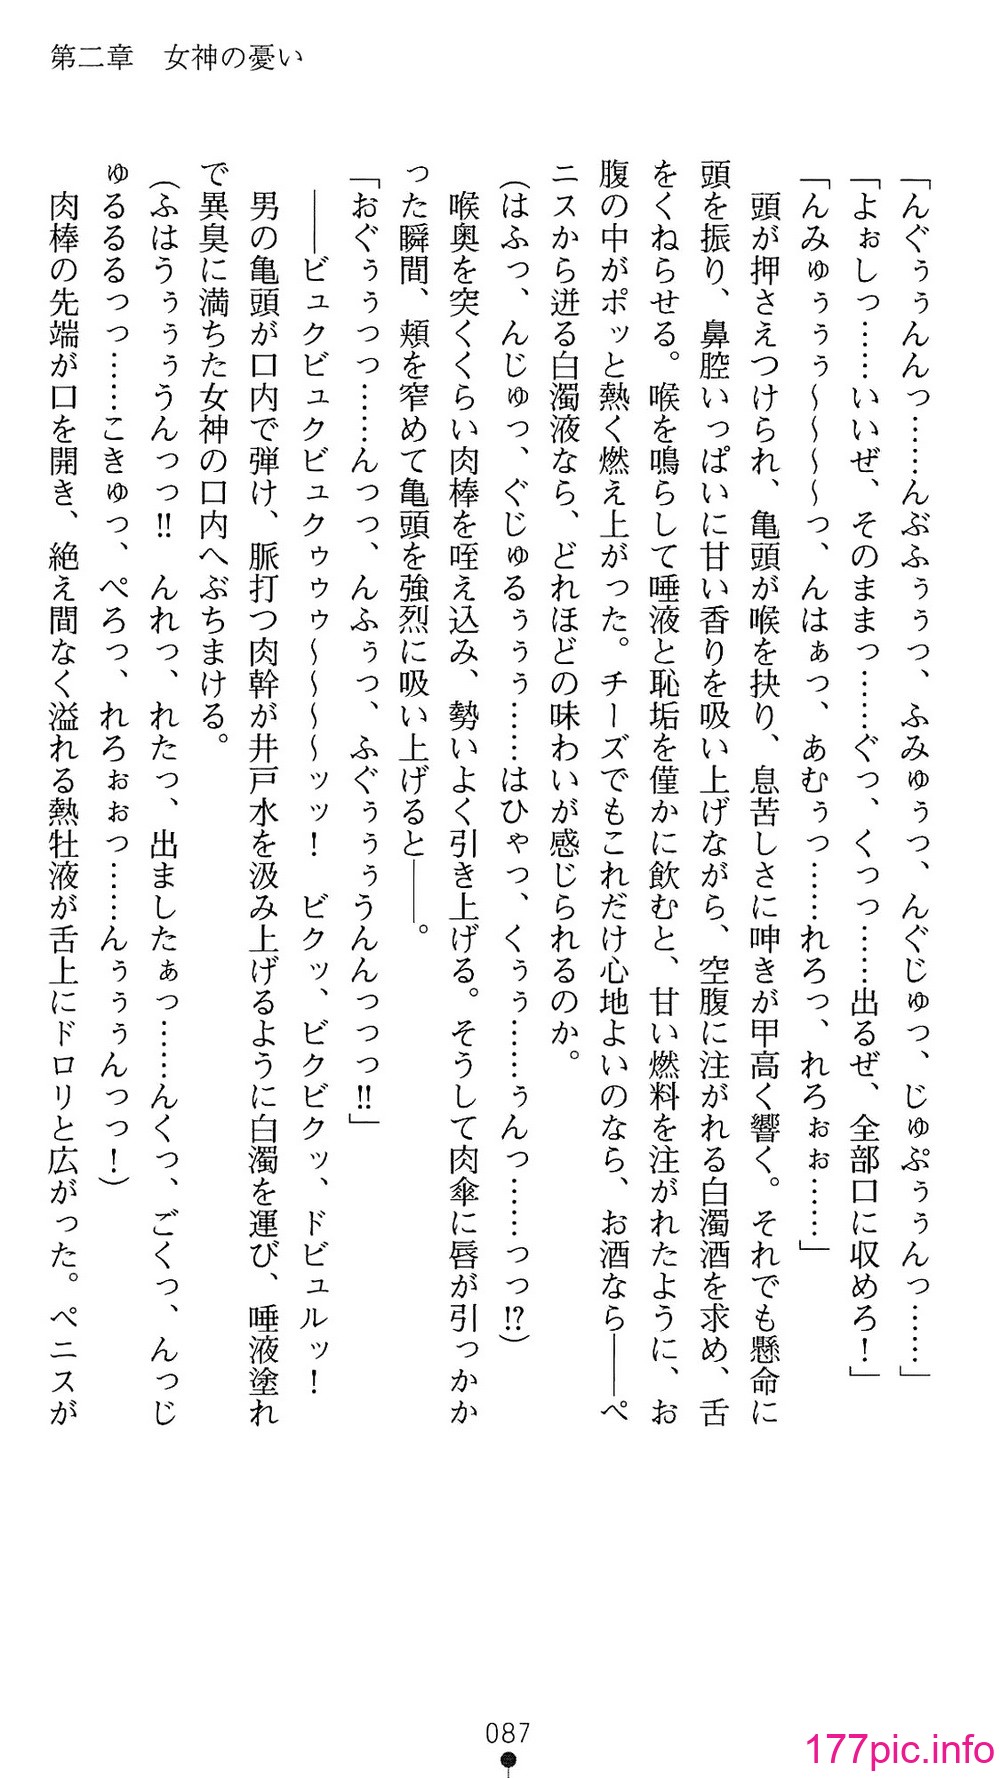 第二章　女神の憂い
「んぐぅぅんんっ……んぶふぅぅっ、ふみゅぅっ、んぐじゅっ、じゅぷぅぅんっ……」
「よぉしっ……いいぜ、そのままっ……ぐっ、くっっ……出るぜ、全部口に収めろ！」
「んみゅぅぅぅ～～～～っ、んはぁっ、あむぅっ……れろっ、れろぉぉ……」
　頭が押さえつけられ、亀頭が喉を抉り、息苦しさに呻きが甲高く響く。それでも懸命に
頭を振り、鼻腔いっぱいに甘い香りを吸い上げながら、空腹に注がれる白濁酒を求め、舌
をくねらせる。喉を鳴らして唾液と恥垢を僅かに飲むと、甘い燃料を注がれたように、お
腹の中がポッと熱く燃え上がった。チーズでもこれだけ心地よいのなら、お酒なら――ペ
ニスから迸る白濁液なら、どれほどの味わいが感じられるのか。
（はふっ、んじゅっ、ぐじゅるぅぅぅ……はひゃっ、くぅぅ……ぅんっ……っっ!?）
　喉奥を突くくらい肉棒を咥え込み、勢いよく引き上げる。そうして肉傘に唇が引っかか
った瞬間、頬を窄めて亀頭を強烈に吸い上げると――。
「おぐぅぅっっ……んっっ、んふぅっ、ふぐぅぅぅうんんっっっ!!」
　――ビュクビュクビュクゥゥゥ～～～～ッッ！　ビクッ、ビクビクッ、ドビュルッ！
　男の亀頭が口内で弾け、脈打つ肉幹が井戸水を汲み上げるように白濁を運び、唾液塗れ
で異臭に満ちた女神の口内へぶちまける。
（ふはうぅぅぅうんっっ!!　んれっ、れたっ、出ましたぁっ……んくっ、ごくっ、んっじ
ゅるるるっっ……こきゅっ、ぺろっ、れろぉぉっ……んぅぅぅんっっ！）
　肉棒の先端が口を開き、絶え間なく溢れる熱牡液が舌上にドロリと広がった。ペニスが
087
177pic.info